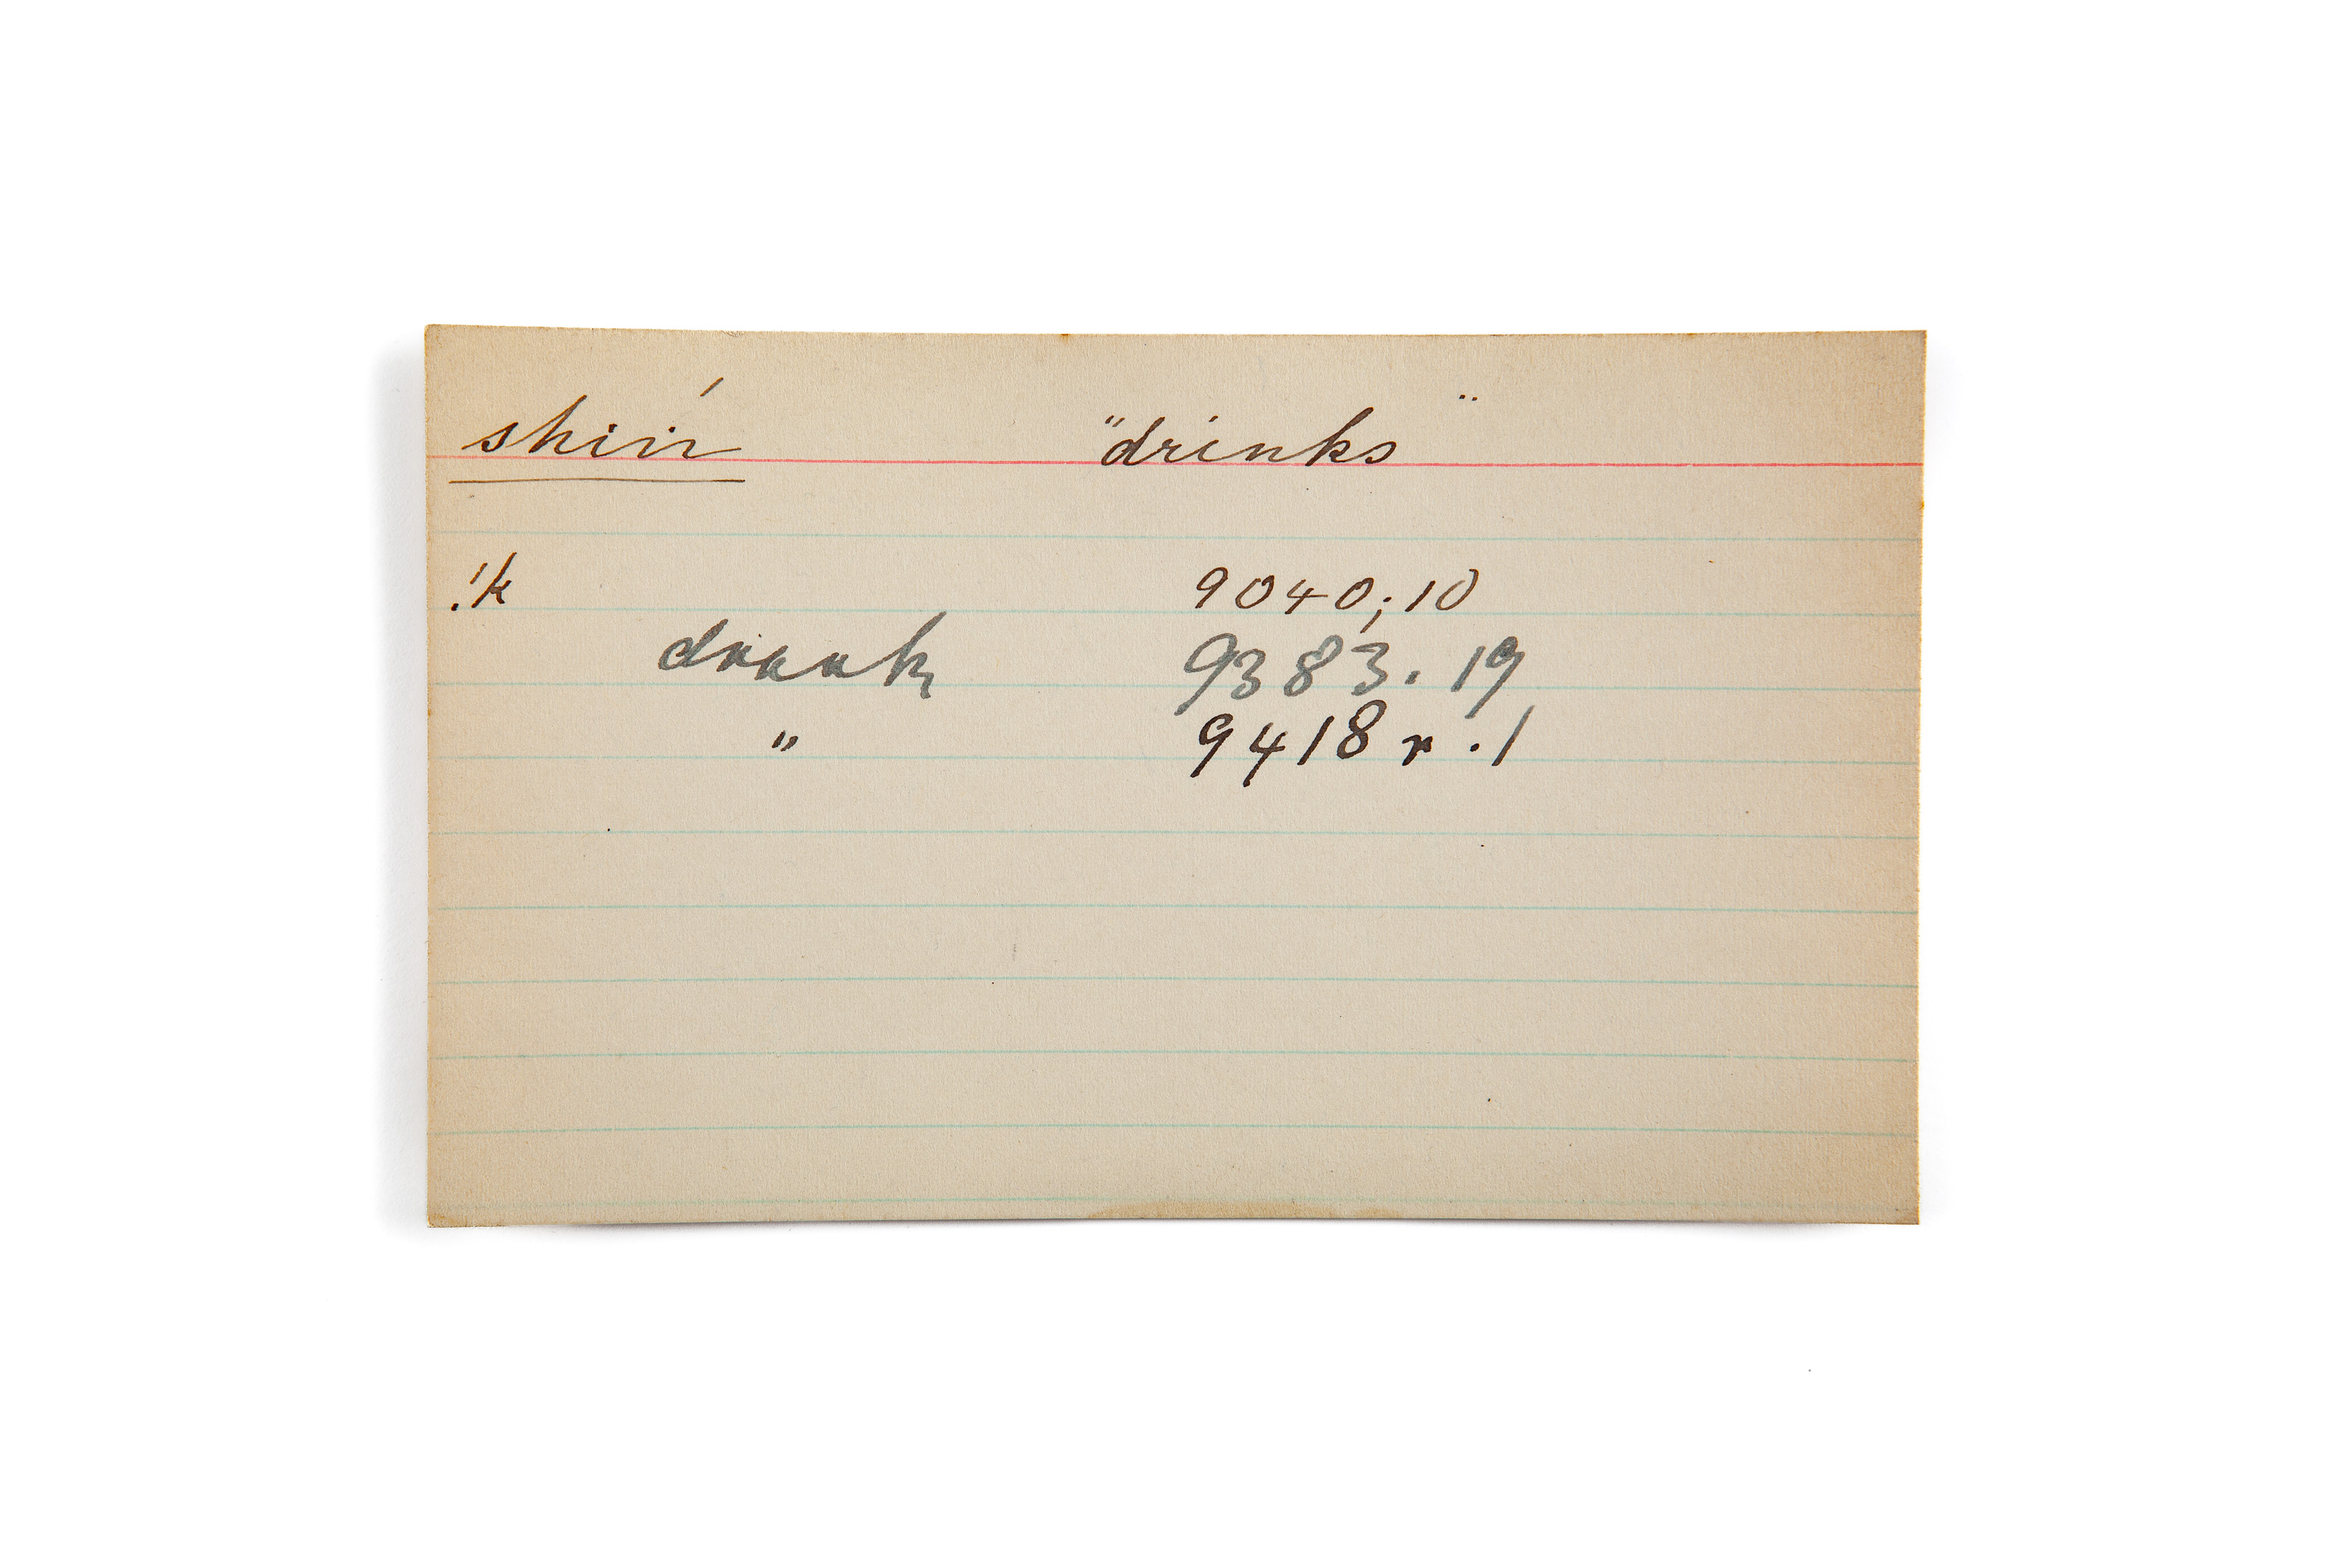 shiń "drinks"
!k 9040; 10
drank 9383. 19
" 9418 r. 1